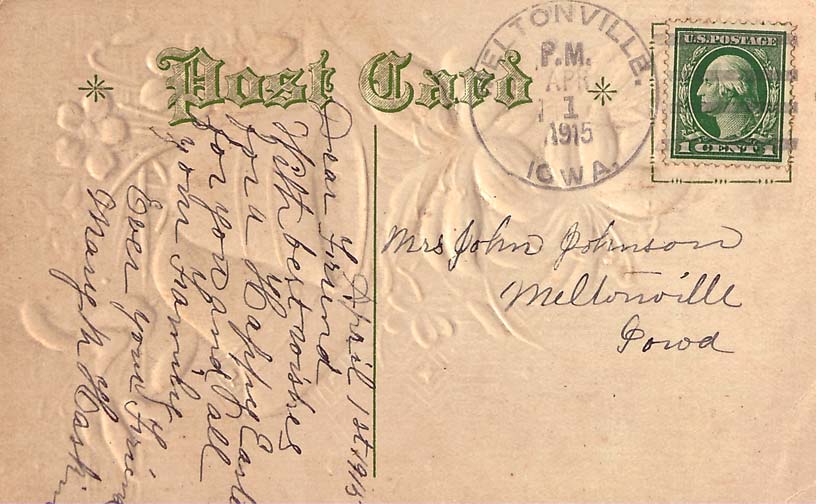 Post Card
U.S. POSTAGE
1 CENT 1
MELTONVILLE.
P.M.
APR
1
1915
IOWA.
Mrs John Johnson
Meltonville
Iowa
April 1 st 1915
Dear Friend
With best wishes
for a Happy Easter
for you and all
your Family
Ever your Friend